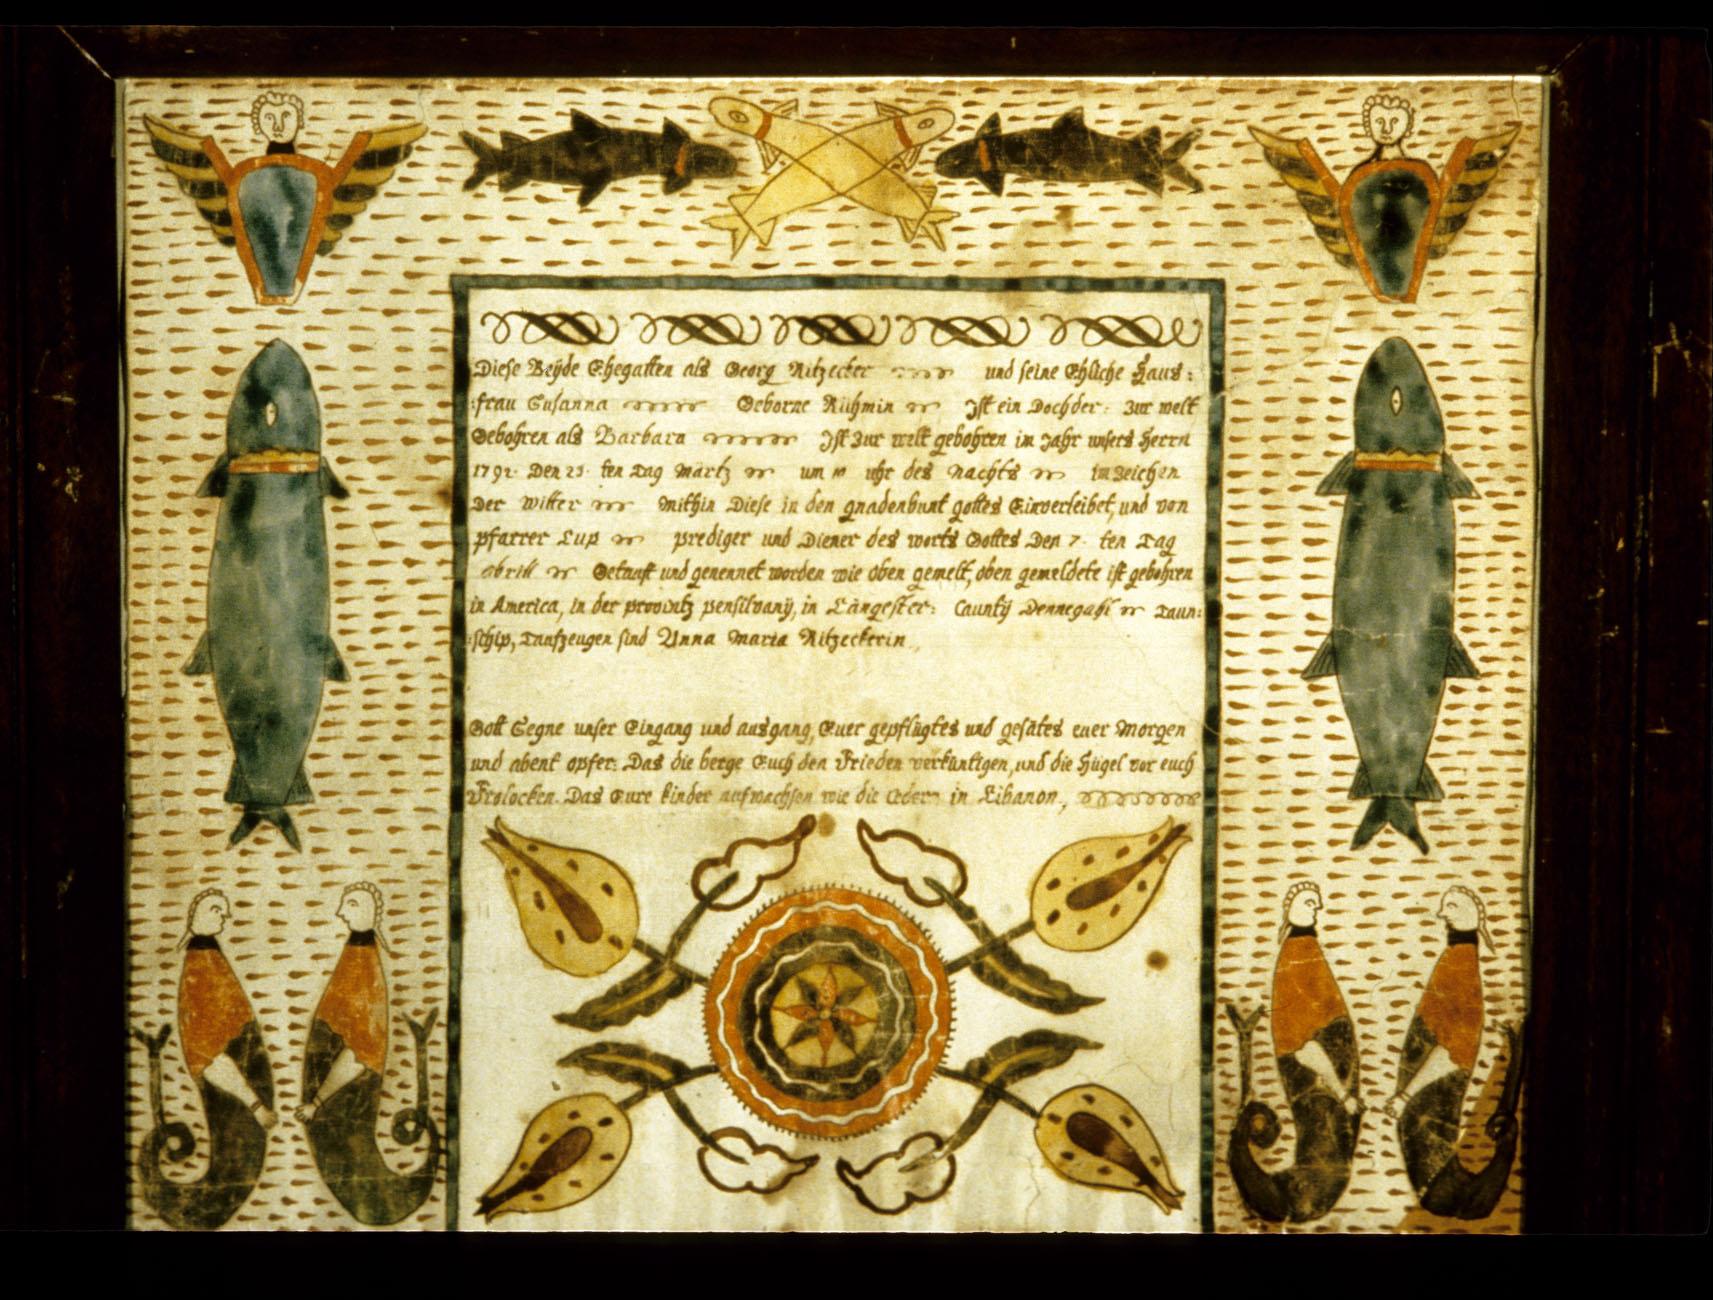 Diese Beÿde Ehegatten als Georg Ritzecker und seine Ehliche Haus:
:frau Susanna Geborne Rühmin Ist ein Dochder: zur welt
Gebohren als Barbara Ist zur welt gebohren im Jahr unsers Herrn
1792. Den 23. ten Tag Märtz um 10 uhr des Nachts im zeichen
Der Witter Mithin Diese in den gnadenbunt gottes Einverleibet, und von
pfarrer Lup prediger und Diener des worts Gottes Den 7. ten Tag
abrill Getauft und genennet worden wie oben gemelt, oben gemeldete ist gebohren
in America, in der provintz pensilvanÿ, in Längester: Cauntÿ Dennegahl Taun:
:schip, Taufzeugen sind Anna Maria Ritzeckerin.,
Gott Segne unser Eingang und ausgang, Euer gepflügtes und gesätes euer Morgen
und abent opfer: Das die berge Euch den Frieden verküntigen, und die Hügel vor euch
Frolocken. Das Eure kinder aufwachsen wie die Ceder in Libanon.,